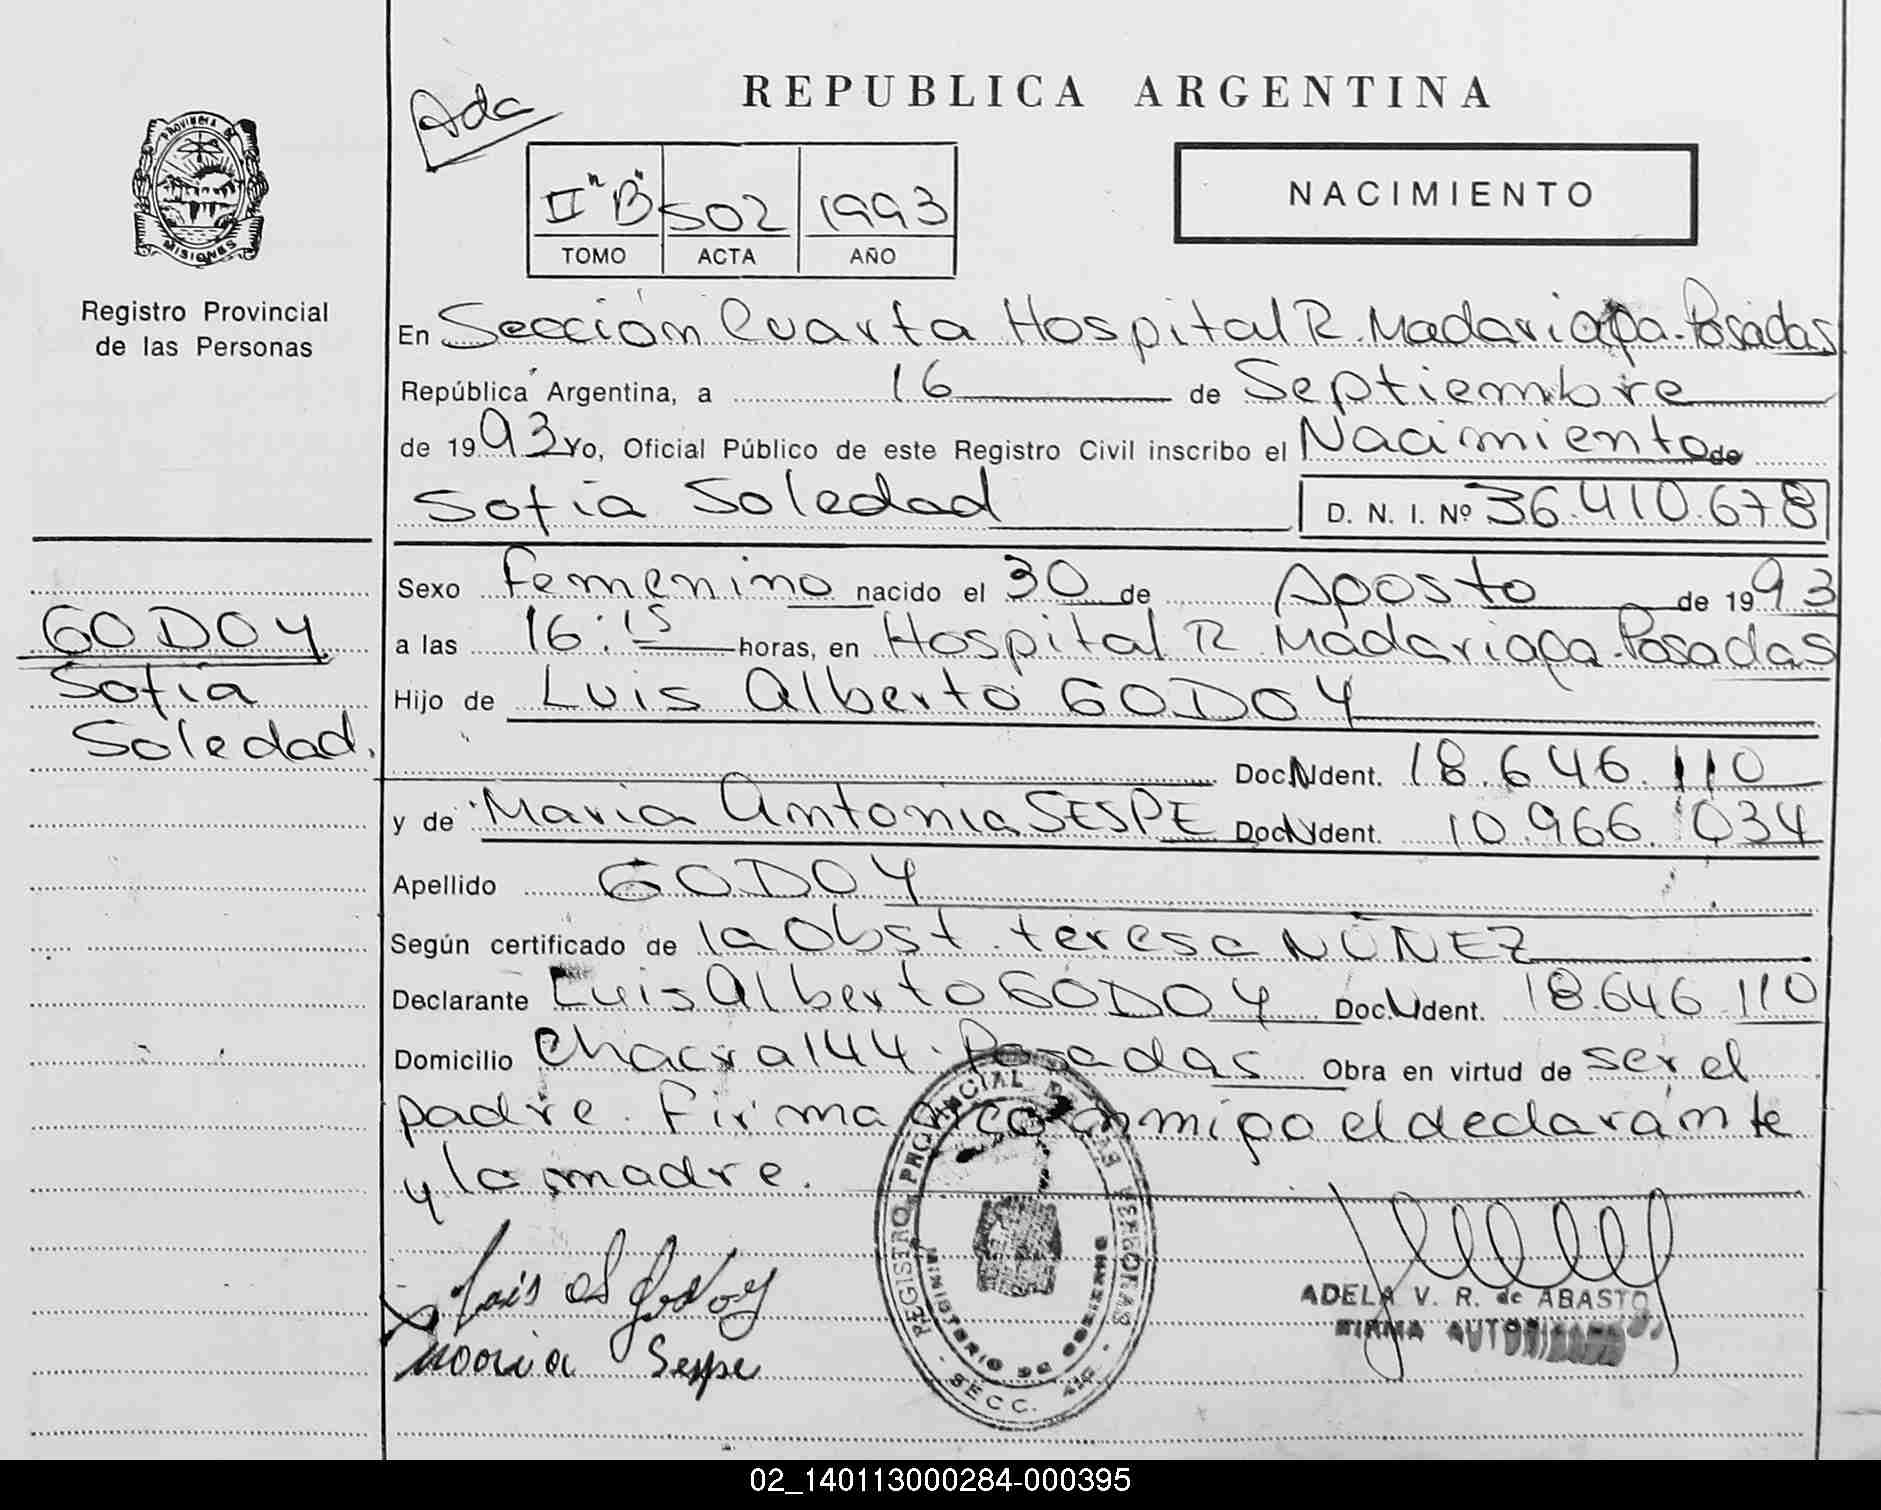 REPUBLICA ARGENTINA
Ada
PROVINCIA DE
MISIONES
Registro Provincial
de las Personas
II "B" 502 1993
TOMO ACTA AÑO
NACIMIENTO
En Sección Cuarta Hospital R. Madariaga-Posadas
República Argentina, a 16 de Septiembre
de 1993 Yo, Oficial Público de este Registro Civil inscribo el Nacimiento de
Sofia Soledad D. N. I. Nº 36.410.678
GODOY
Sofia
Soledad.
Sexo Femenino nacido el 30 de Agosto de 1993
a las 16:15 horas, en Hospital R. Madariaga-Posadas
Hijo de Luis Alberto GODOY
Doc. N. Ident. 18.646.110
y de Maria Antonia SESPE Doc. N. Ident. 10.966.034
Apellido GODOY
Según certificado de la Obst. teresa NUÑEZ
Declarante Luis Alberto GODOY Doc. N. Ident. 18.646.110
Domicilio Chacra 144. Posadas Obra en virtud de ser el
padre. Firman conmigo el declarante
y la madre.
REGISTRO PROVINCIAL DE LAS PERSONAS
MINISTERIO DE GOBIERNO
SECC. 4ta
Luis A Godoy
Maria Sespe
ADELA V. R. de ABASTO
FIRMA AUTORIZADA
02_140113000284-000395